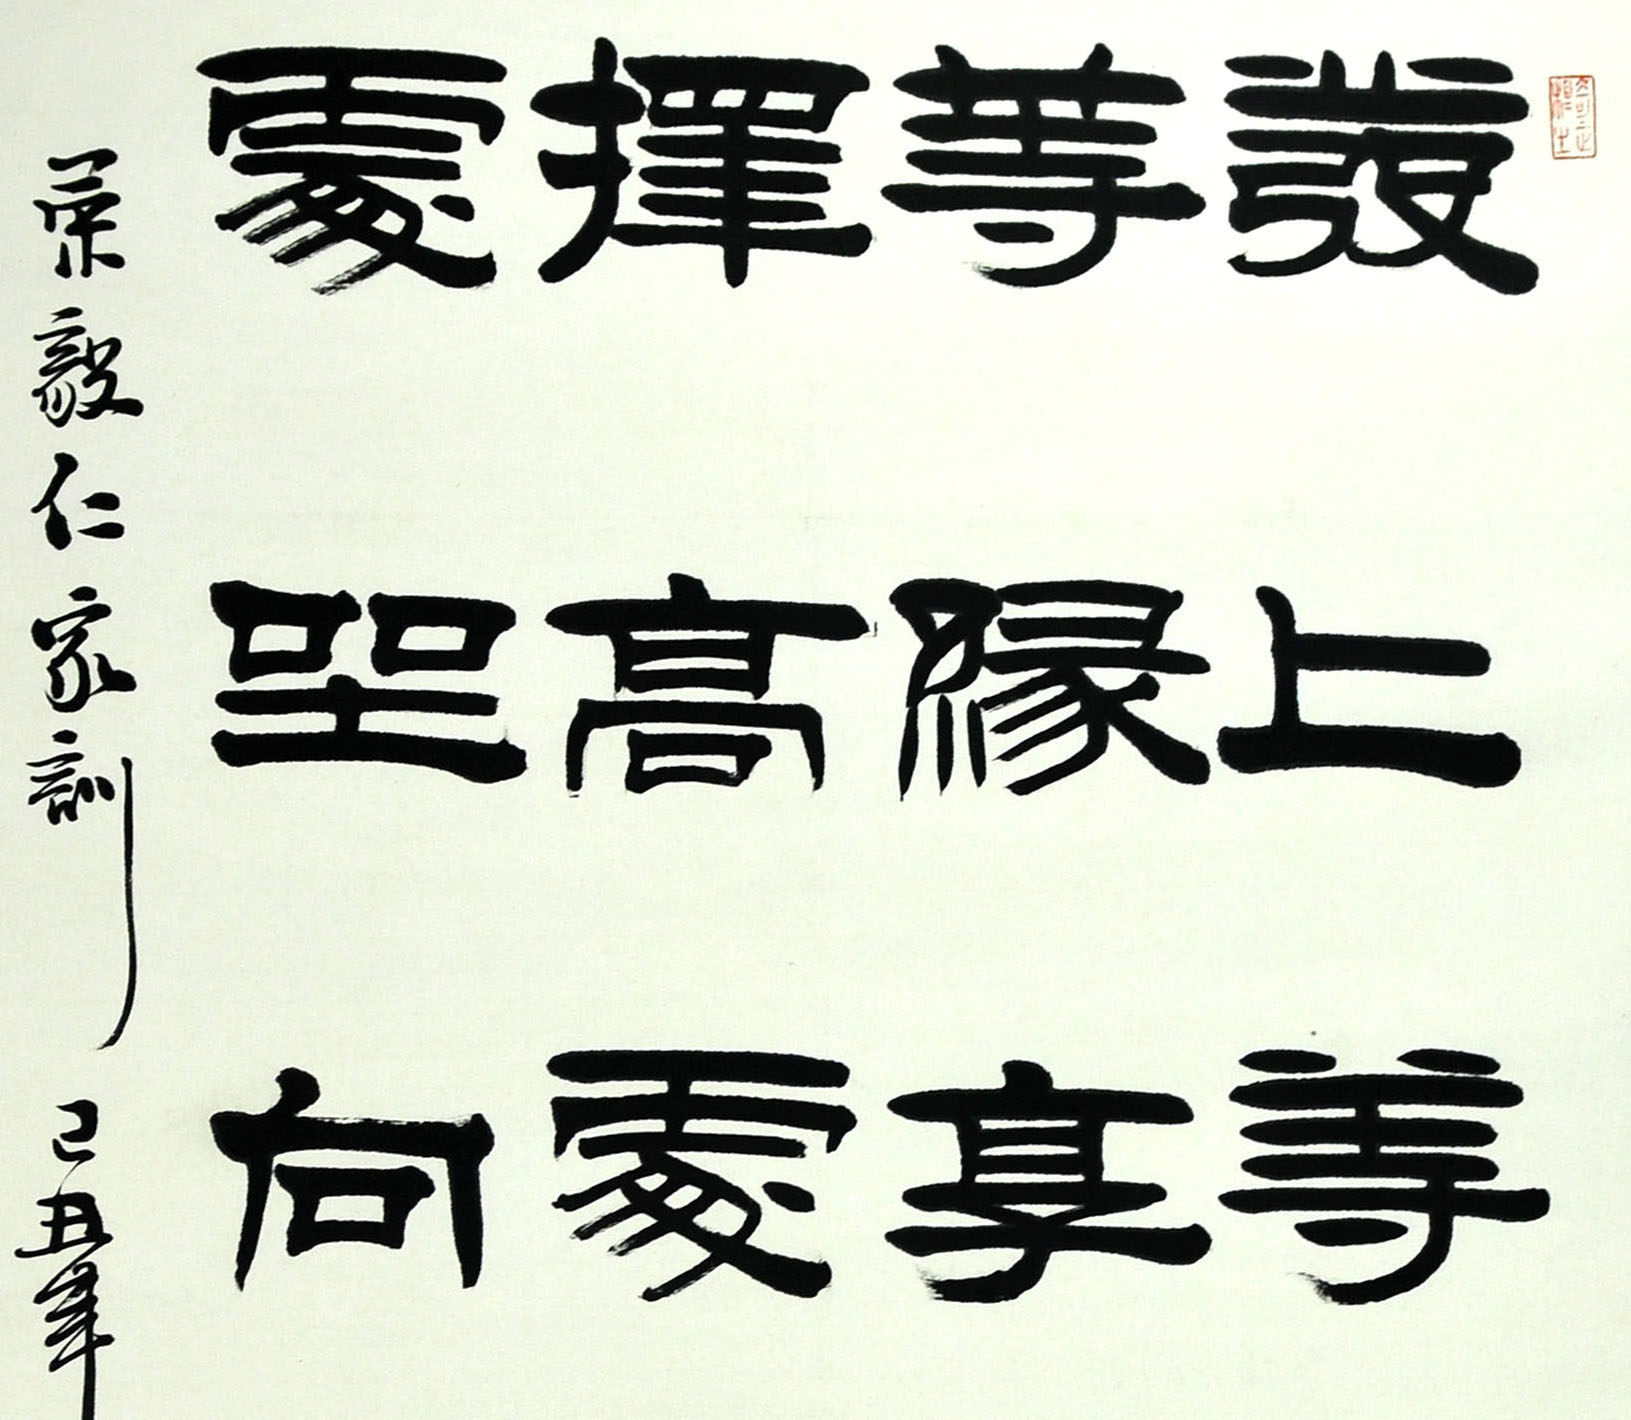 發上等
等緣享
擇高處
處坐向
榮毅仁家訓 己丑年